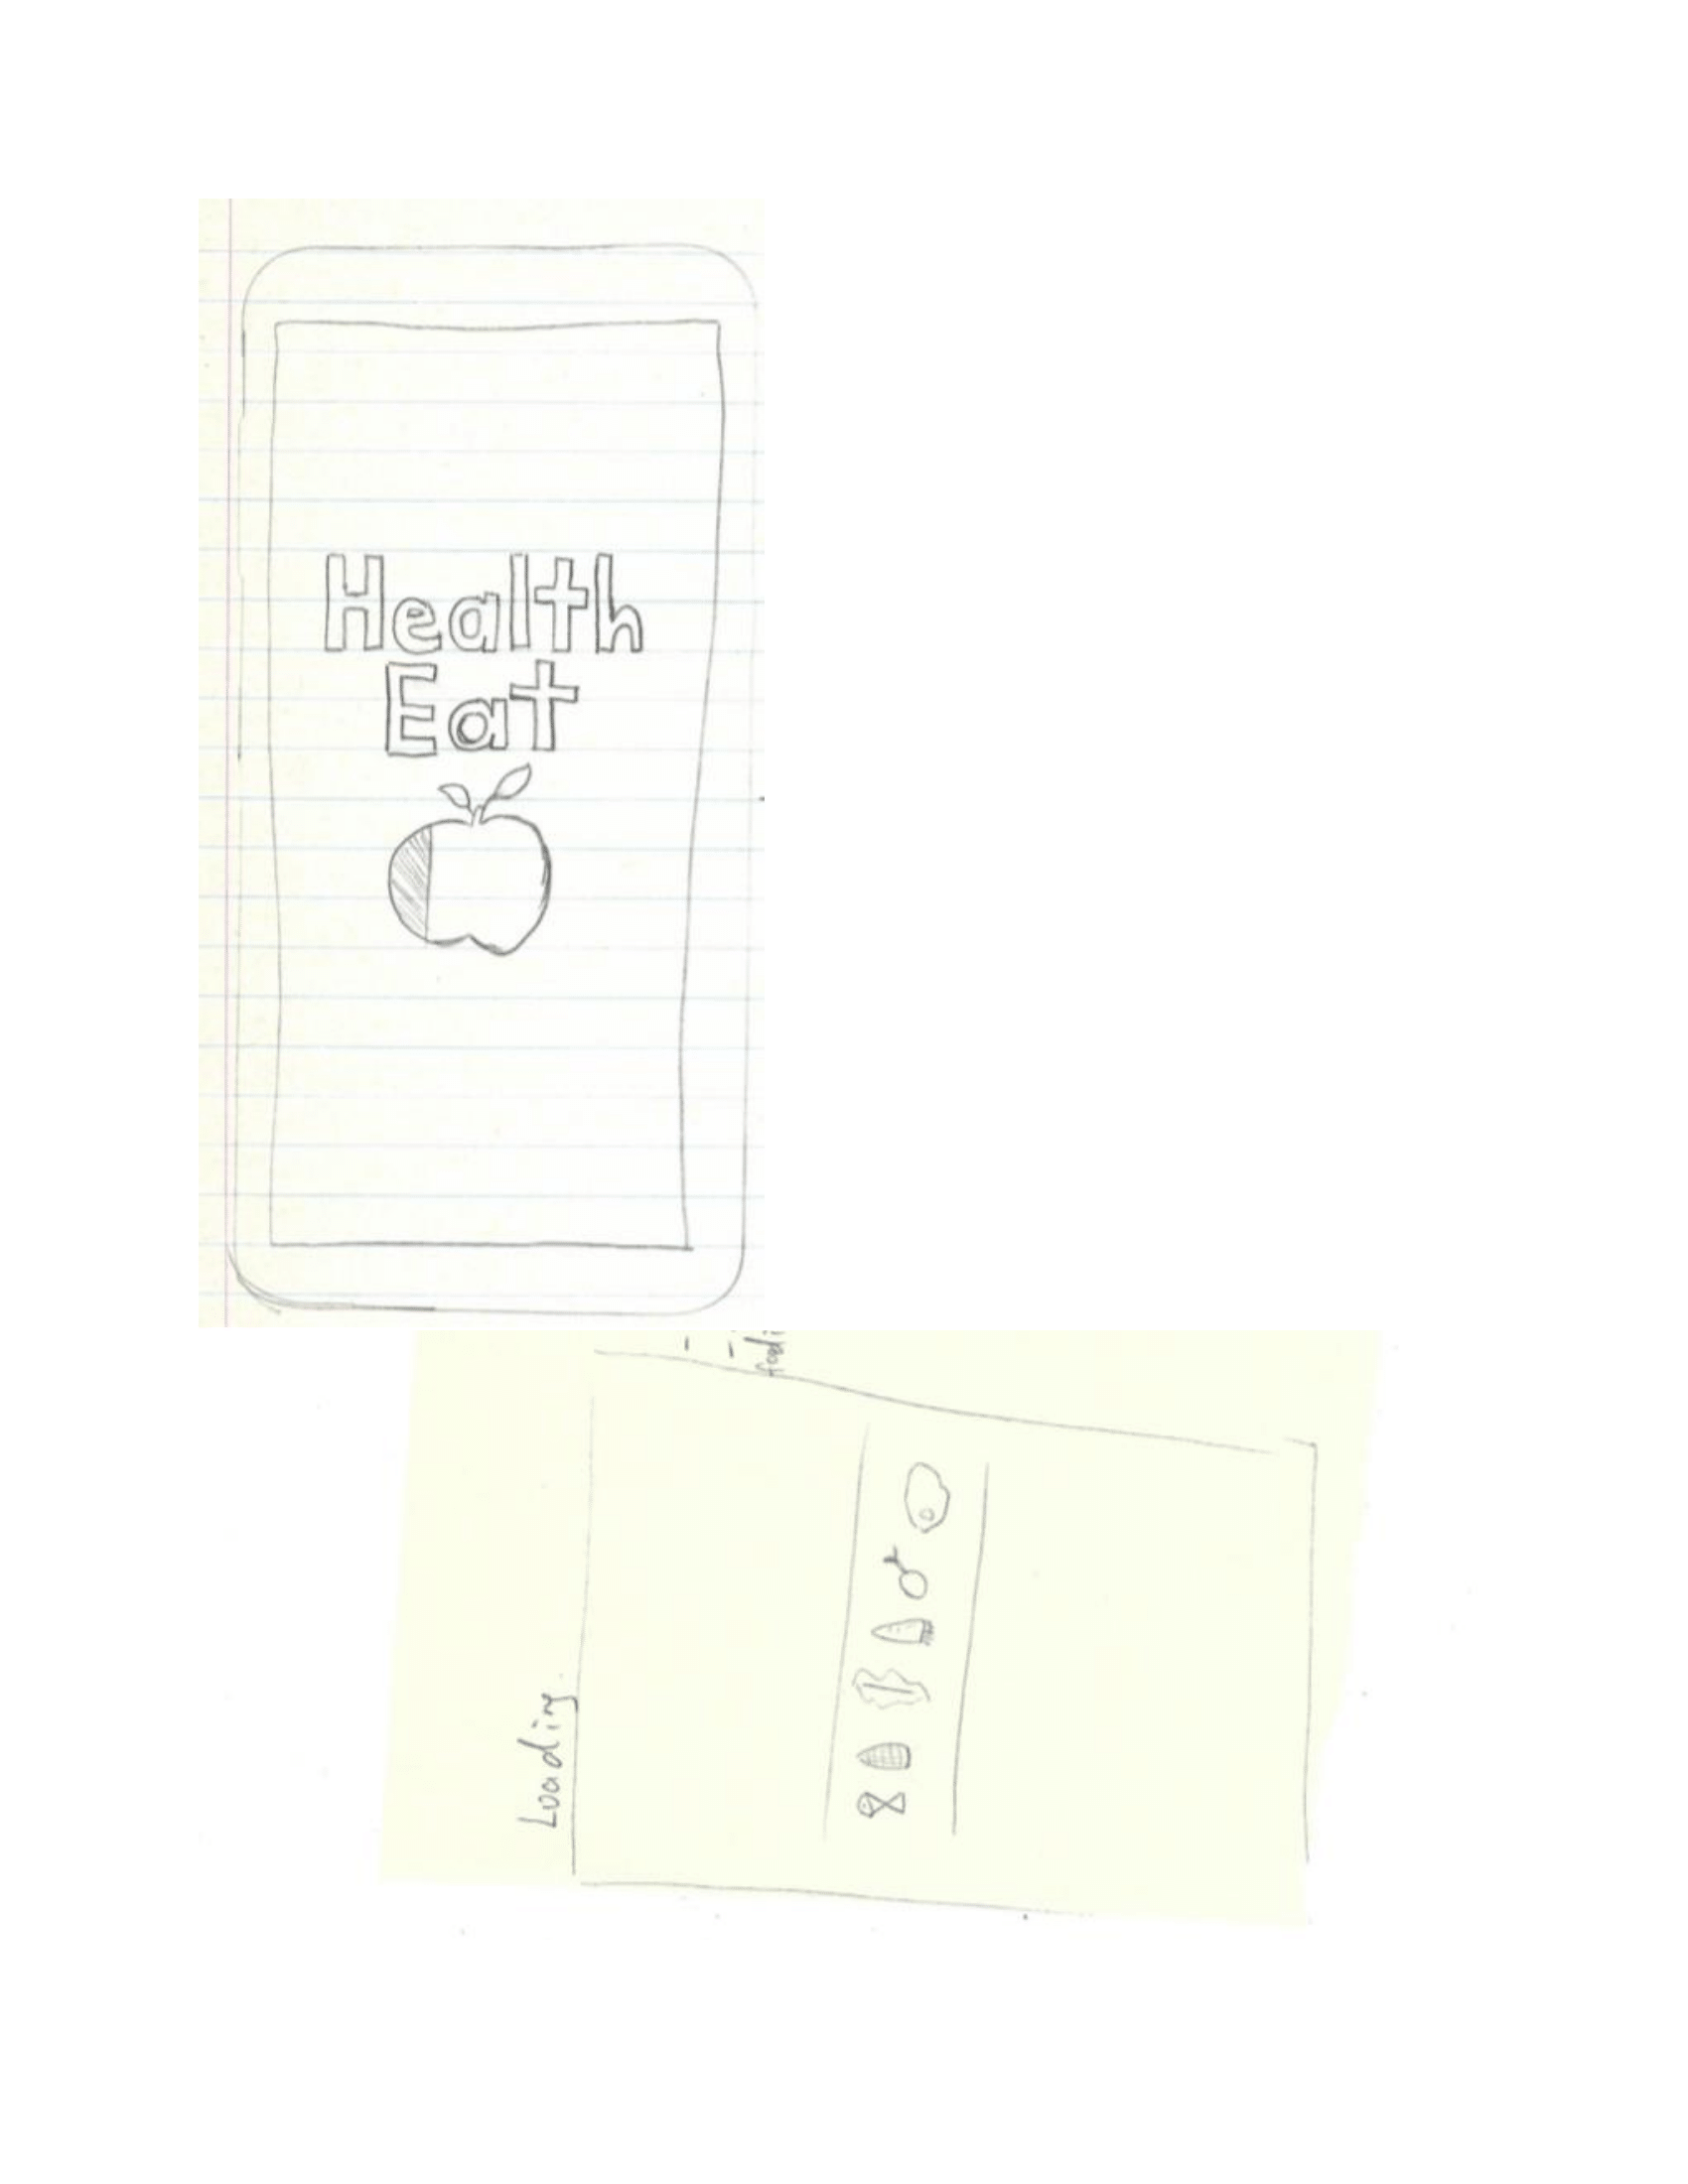 Health
Eat
Loading